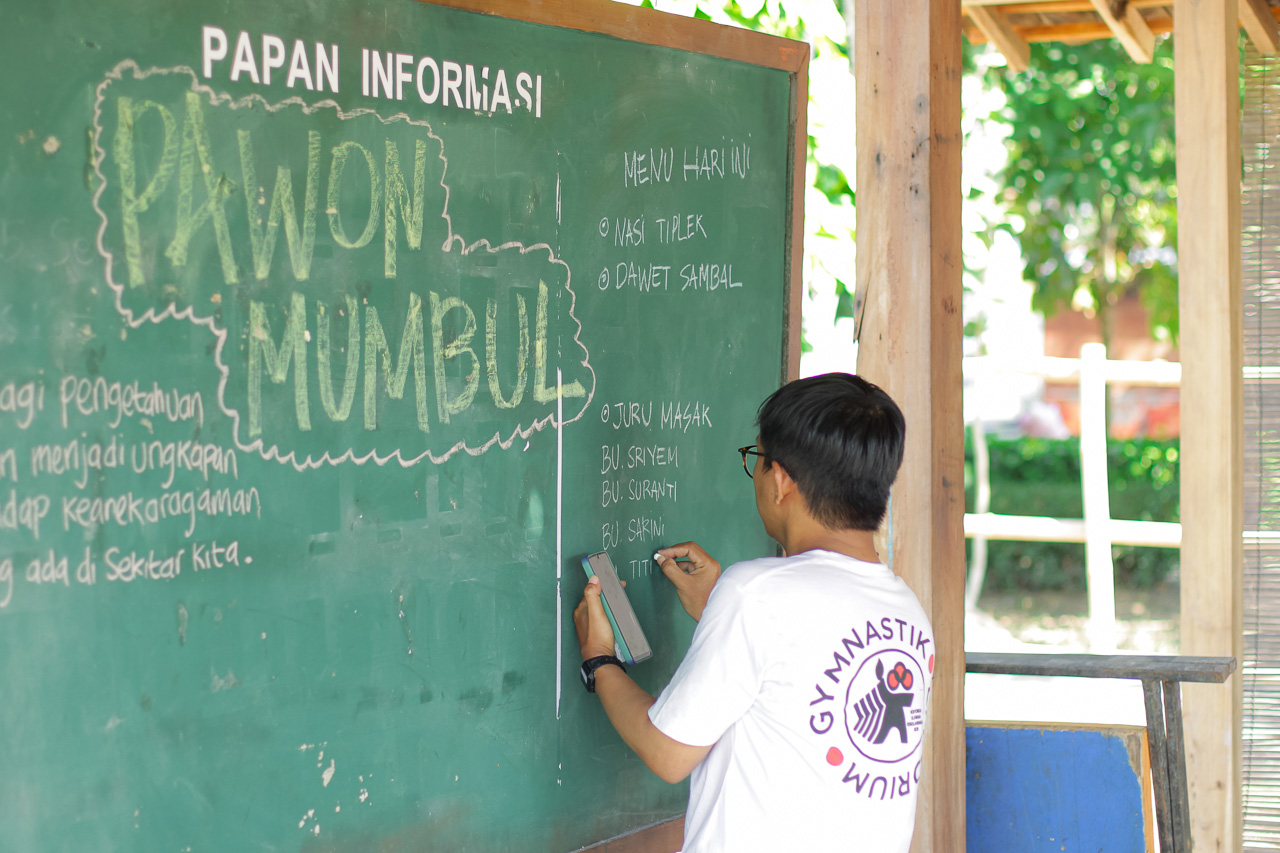 PAPAN INFORMASI
PAWON
MUMBUL
agi pengetahuan
n menjadi ungkapan
dap keanekaragaman
g ada di Sekitar Kita.
MENU HARI INI
NASI TIPLEK
DAWET SAMBAL
JURU MASAK
BU. SRIYEM
BU. SURANTI
BU. SAKINI
TIT
GYMNASTIK
ORIUM